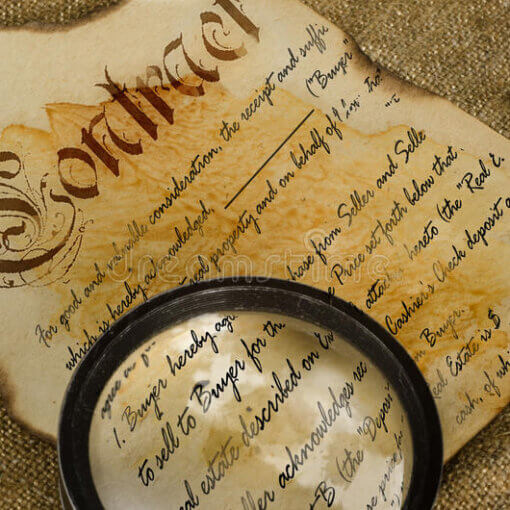 Contract
For good and valuable consideration, the receipt and suffi
which is hereby acknowledged, ("Buyer"
al property and on behalf of tha
agree
1. Buyer hereby ag have from Seller and Selle
to sell to Buyer for th e Price set forth below that
al estate described on Ex hereto (the "Real E
ller acknowledges rec Cashier's Check deposit a
B (the "Deposi m Buyer.
se price for Real Estate is $
cash, of whi
dreamstime